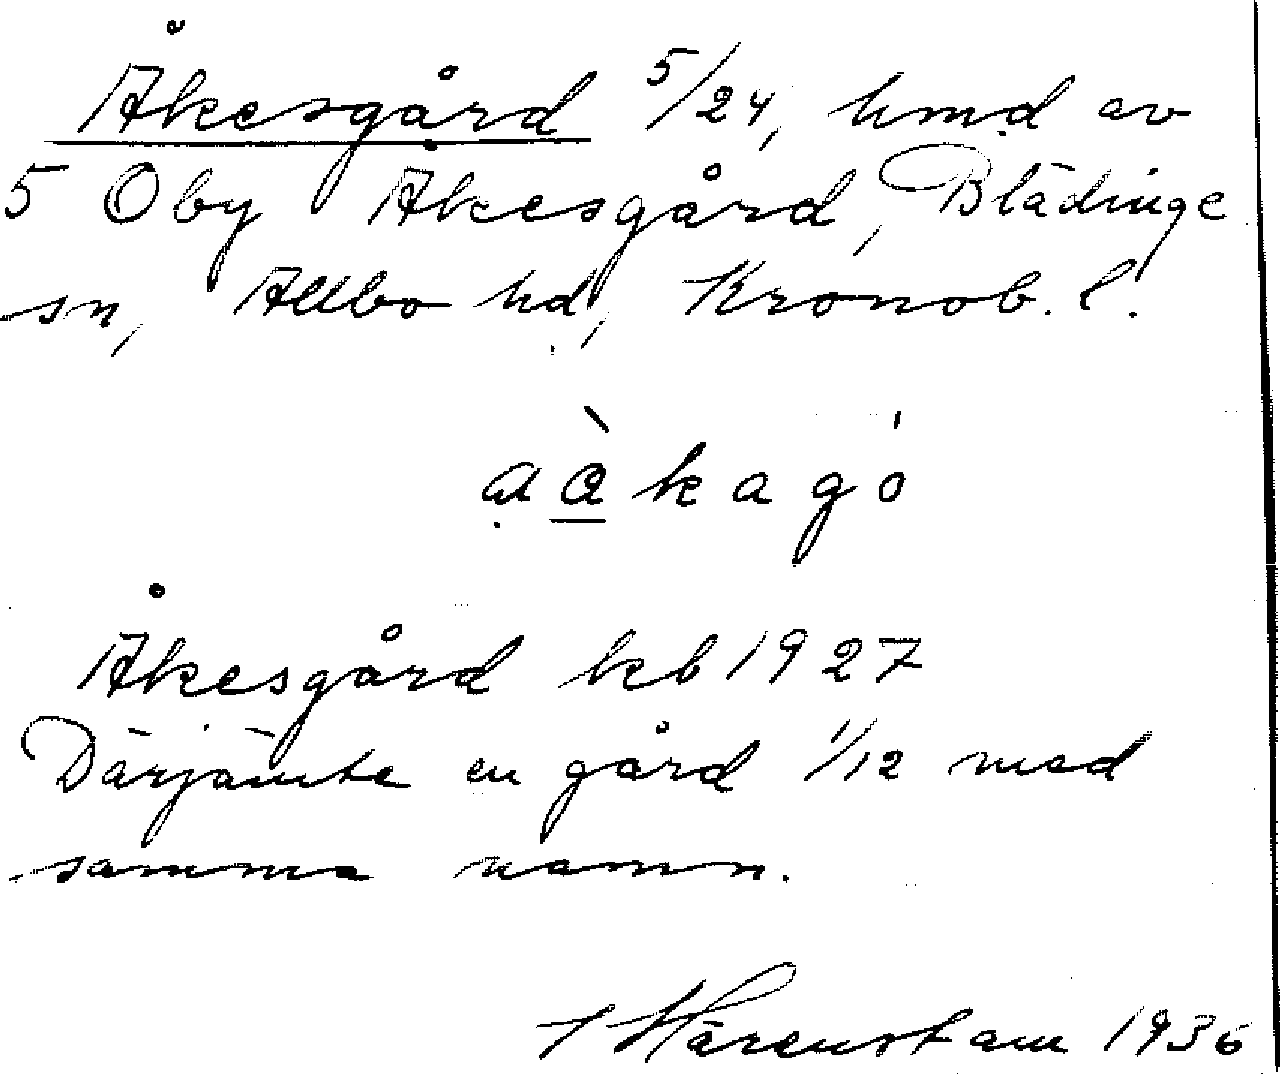 Åkesgård 5/24, hmd av
5 Oby Åkesgård, Blädinge
sn, Allbo hd, Kronob. l.
aàkagó
Åkesgård kb 1927
Därjämte en gård 1/12 med
samma namn.
Härenstam 1936